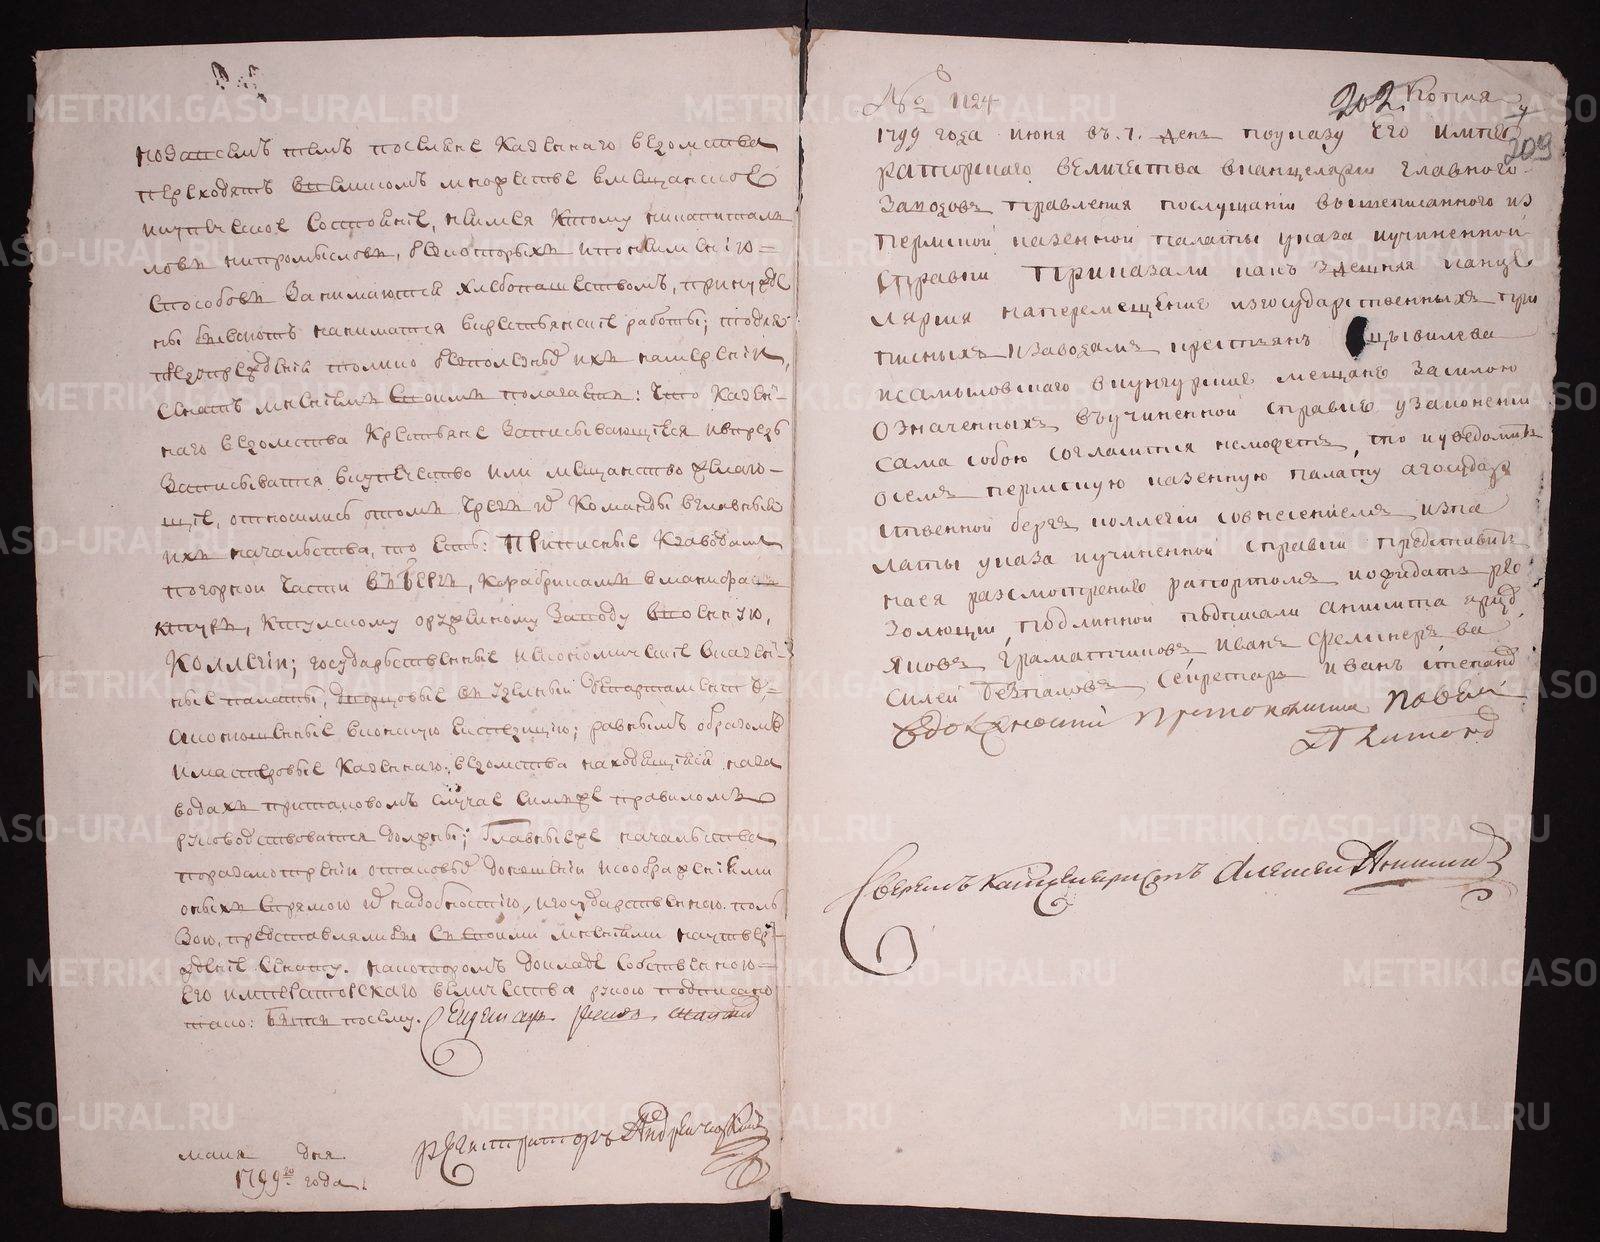 подателмъ темъ поселяне казеннаго ведомства
переходятъ великомъ множестве вмещанское
икупеческое состоянїе, неимея ктому никапитал
ловъ нипромысловъ, безкоторыхъ ипоневимению
способовъ занимаются хлебопашествомъ, принужде
ны бываютъ наниматся вкрестьянские работы;
безполезныхъ ихъ намеренїи,
сенатъ мненїемъ своимъ полагаетъ: что казен-
наго ведомства крестьяне записывающїеся ивпредь
записыватся вкупечество или мещанство желаю-
щїе, относились отомъ чрезъ ихъ команды вглавные
ихъ начальства, то есть: приписные кзаводамъ
погорной части въ бергъ, кфабрикамъ вмануфак
туръ, ктулскому оружейному заводу ввоенную,
коллегїи; государственные иекономические вказен-
ные палаты, дворцовые вуделный департаментъ
вконскую експедицию; равнымъ образомъ
имастеровые казеннаго ведомства находящїеся наза
водахъ притаковомъ случае симъже правиломъ
руководствоватся должны; главныеже началства
поразсмотренїи отаковыхъ донесенїи исоображенїями
оныхъ спрямою ихъ надобностїю, игосударственною поль
зою, представлялибы съ своими мненїями наутвер-
жденїе сенату. накоторомъ докладе собственною
его императорскаго величества рукою подписано
тако: быть посему.
регистраторъ Андрей
маия дня
1799го года.
№ 1124
202. Копия
209
1799 года июня въ 7. день поуказу Его импе
раторскаго величества вканцелярии главного
заводовъ правления послушании вышеписанного из
пермской казенной палаты указа иучиненной
справки приказали какъ здешняя канце
лярия наперемещение изгосударственныхъ при
писныхъ кзаводамъ крестьянъ Цывилева
исамыловскаго вкунгурские мещане засилою
означенныхъ въучиненной справке узаконении
сама собою согласится неможетъ, то иуведомить
осемъ пермскую казенную палату агосудар
ственной бергъ коллегии совнесениемъ изпа
латы указа иучиненной справки представить
нася разсмотрению рапортомъ иожидать резо
золюции, подлинной подписали аникита ярцо
яковъ граматчиковъ иванъ ва
силей безпаловъ секретарь иванъ степано
вдолжности протоколиста Павелъ
Сверялъ канцеляристъ Алексей